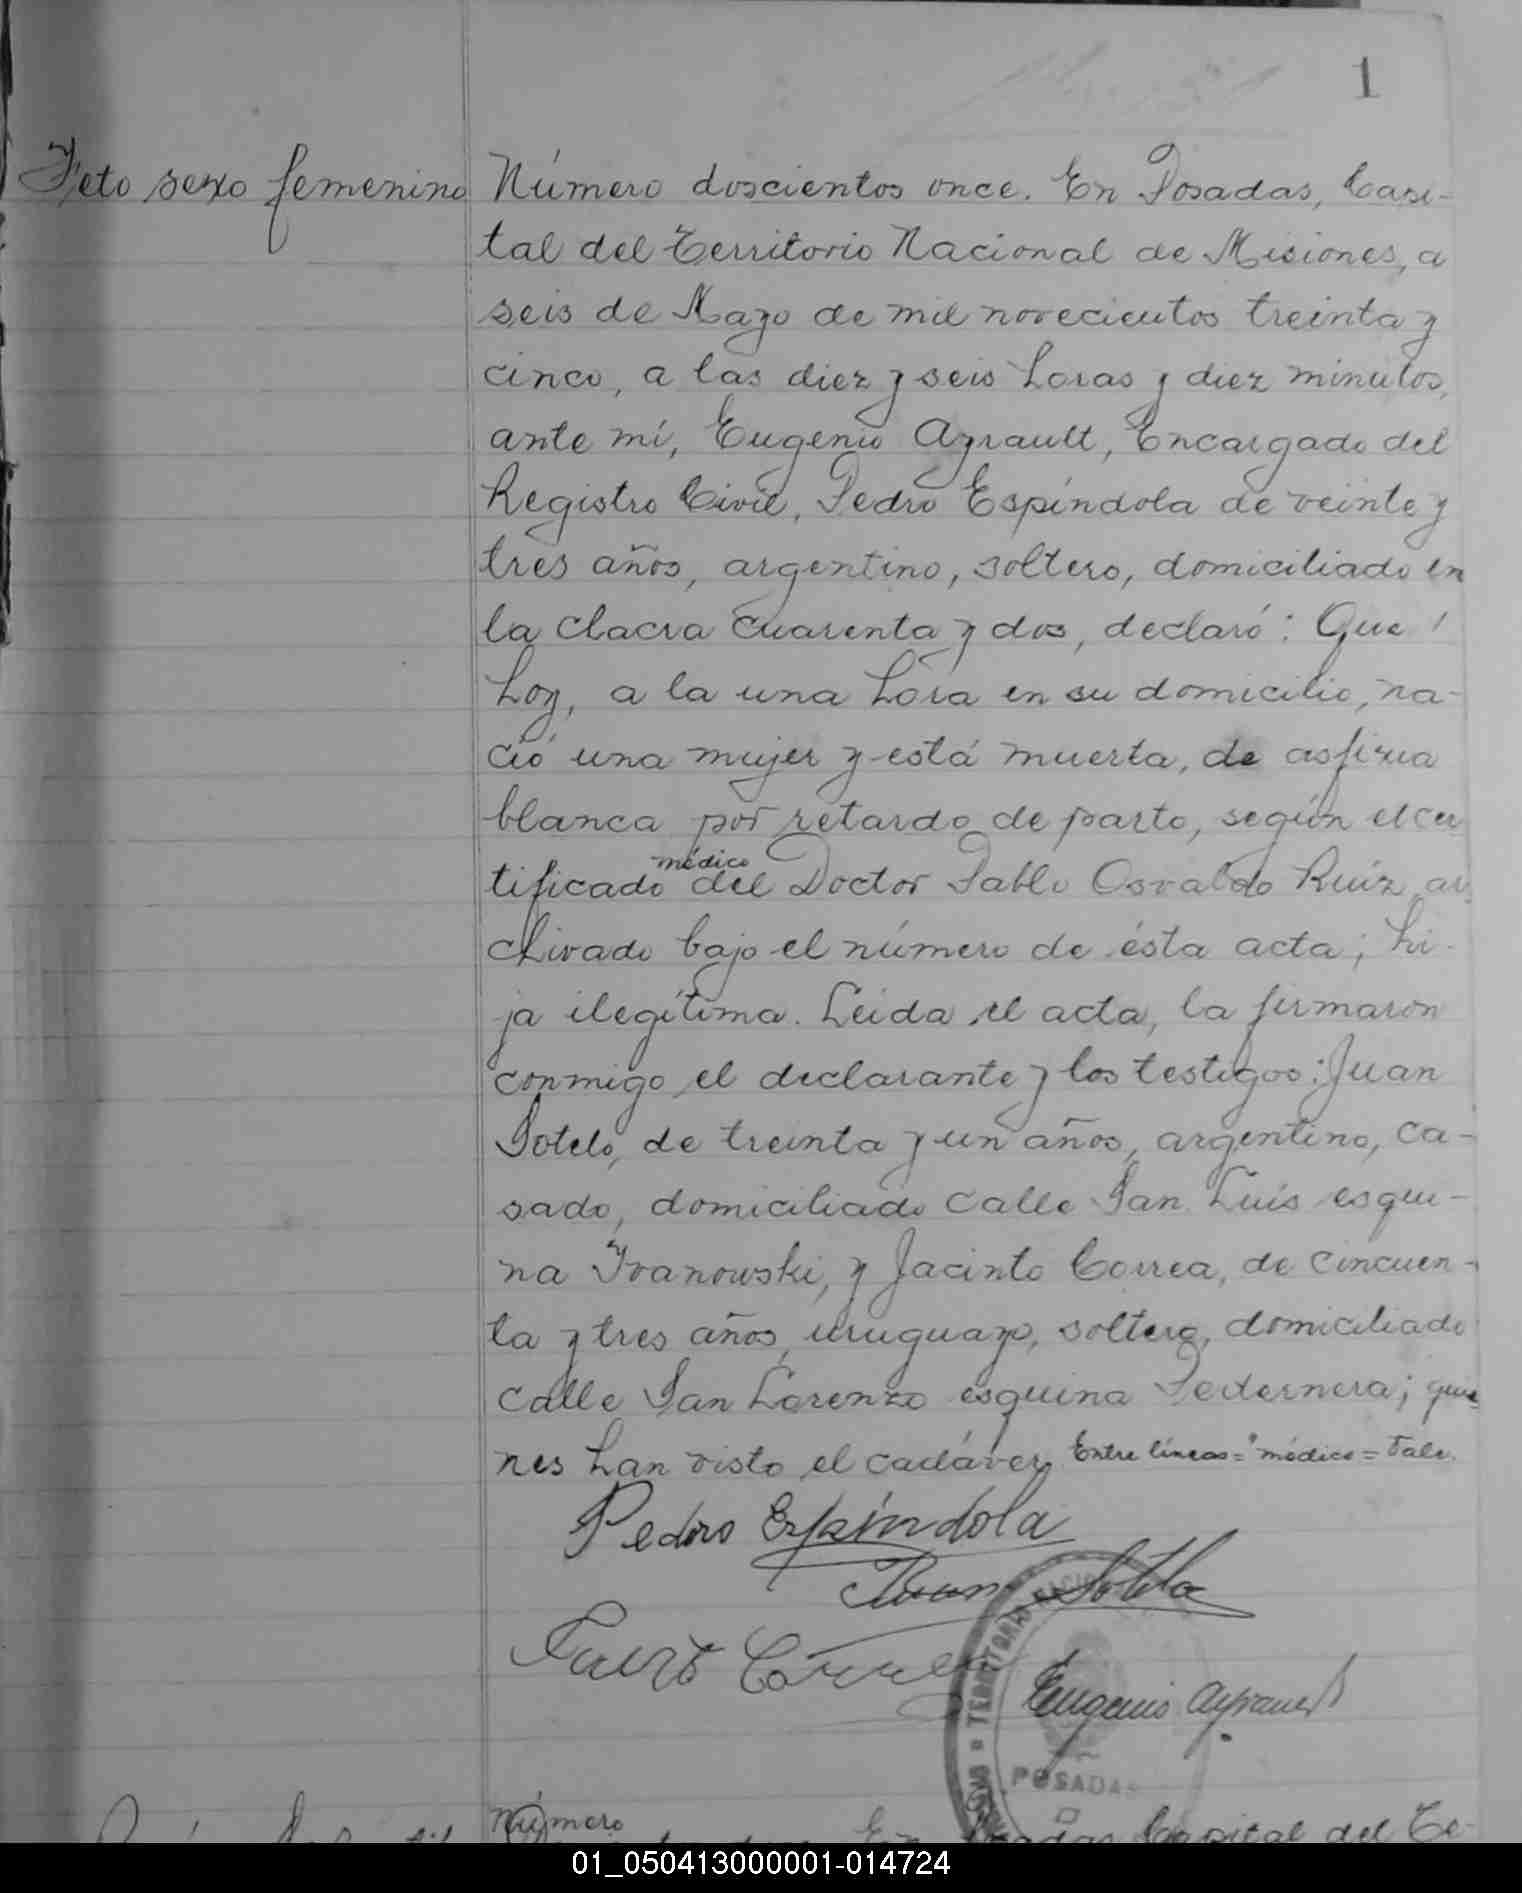 1
Feto sexo femenino
Número doscientos once. En Posadas, Capi-
tal del Territorio Nacional de Misiones, a
seis de Mayo de mil novecientos treinta y
cinco, a las diez y seis horas y diez minutos,
ante mí, Eugenio Ayrault, Encargado del
Registro Civil, Pedro Espíndola de veinte y
tres años, argentino, soltero, domiciliado en
la chacra cuarenta y dos, declaró: Que
hoy, a la una hora en su domicilio, na-
ció una mujer y está muerta, de asfixia
blanca por retardo de parto, según el cer
tificado médico del Doctor Pablo Osvaldo Ruíz, ar
chivado bajo el número de ésta acta; hi-
ja ilegítima. Leida el acta, la firmaron
conmigo el declarante y los testigos: Juan
Sotelo, de treinta y un años, argentino, ca-
sado, domiciliado calle San Luis esqui-
na Ivanowski, y Jacinto Correa, de cincuen-
ta y tres años, uruguayo, soltero, domiciliado
calle San Lorenzo esquina Pedernera; quie
nes han visto el cadáver. Entre líneas = "médico = Vale.
Pedro Espíndola
Juan Sotelo
Correa
Eugenio Ayrault
TERRITORIO NACIO
POSADAS
Número
Capital del Te-
01_050413000001-014724